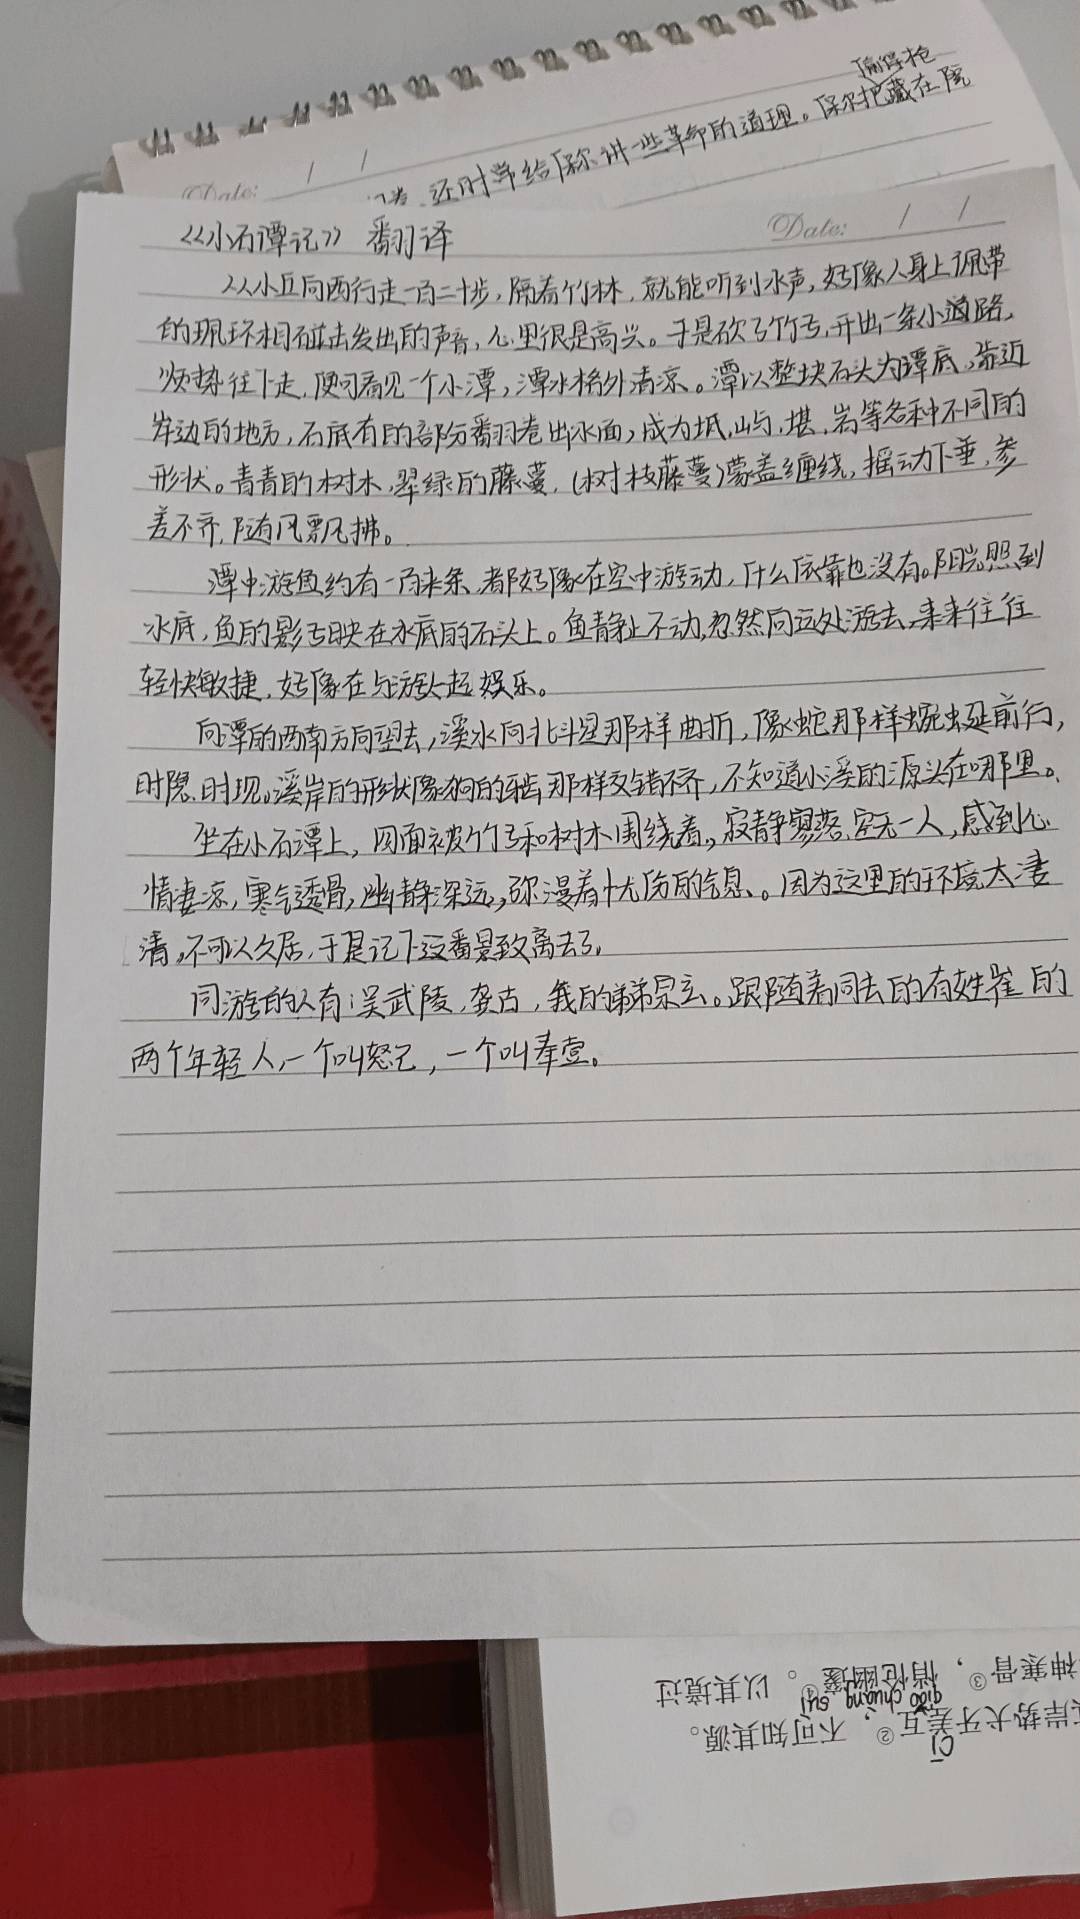 偏得枪
还时常给保尔讲一些革命的道理。保尔把藏在院
Date: / /
《小石潭记》 翻译
Date: / /
从小丘向西行走一百二十步，隔着竹林，就能听到水声，好像人身上佩带
的珮环相碰击发出的声音，心里很是高兴。于是砍了竹子，开出一条小道路，
顺势往下走，便可看见一个小潭，潭水格外清凉。潭以整块石头为潭底，靠近
岸边的地方，石底有的部分翻卷出水面，成为坻、屿、堪、岩等各种不同的
形状。青青的树木，翠绿的藤蔓，（树枝藤蔓）蒙盖缠绕，摇动下垂，参
差不齐，随风飘拂。
潭中游鱼约有一百来条，都好像在空中游动，什么依靠也没有。阳光照到
水底，鱼的影子映在水底的石头上。鱼静止不动，忽然向远处游去，来来往往
轻快敏捷，好像在与游人一起娱乐。
向潭的西南方向望去，溪水向北斗星那样曲折，像蛇那样蜿蜒前行，
时隐时现。溪岸的形状像狗的牙齿那样交错不齐，不知道小溪的源头在哪里。
坐在小石潭上，四面被竹子和树木围绕着，寂静寥落，空无一人，感到心
情凄凉，寒气透骨，幽静深远，弥漫着忧伤的气息。因为这里的环境太凄
清，不可以久居，于是记下这番景致离去了。
同游的人有：吴武陵，龚古，我的弟弟宗玄。跟随着同去的有姓崔的
两个年轻人，一个叫恕己，一个叫奉壹。
岸势犬牙差互②，不可知其源。
cī
神寒骨③，悄怆幽邃④。以其境过
qiǎo chuàng suì